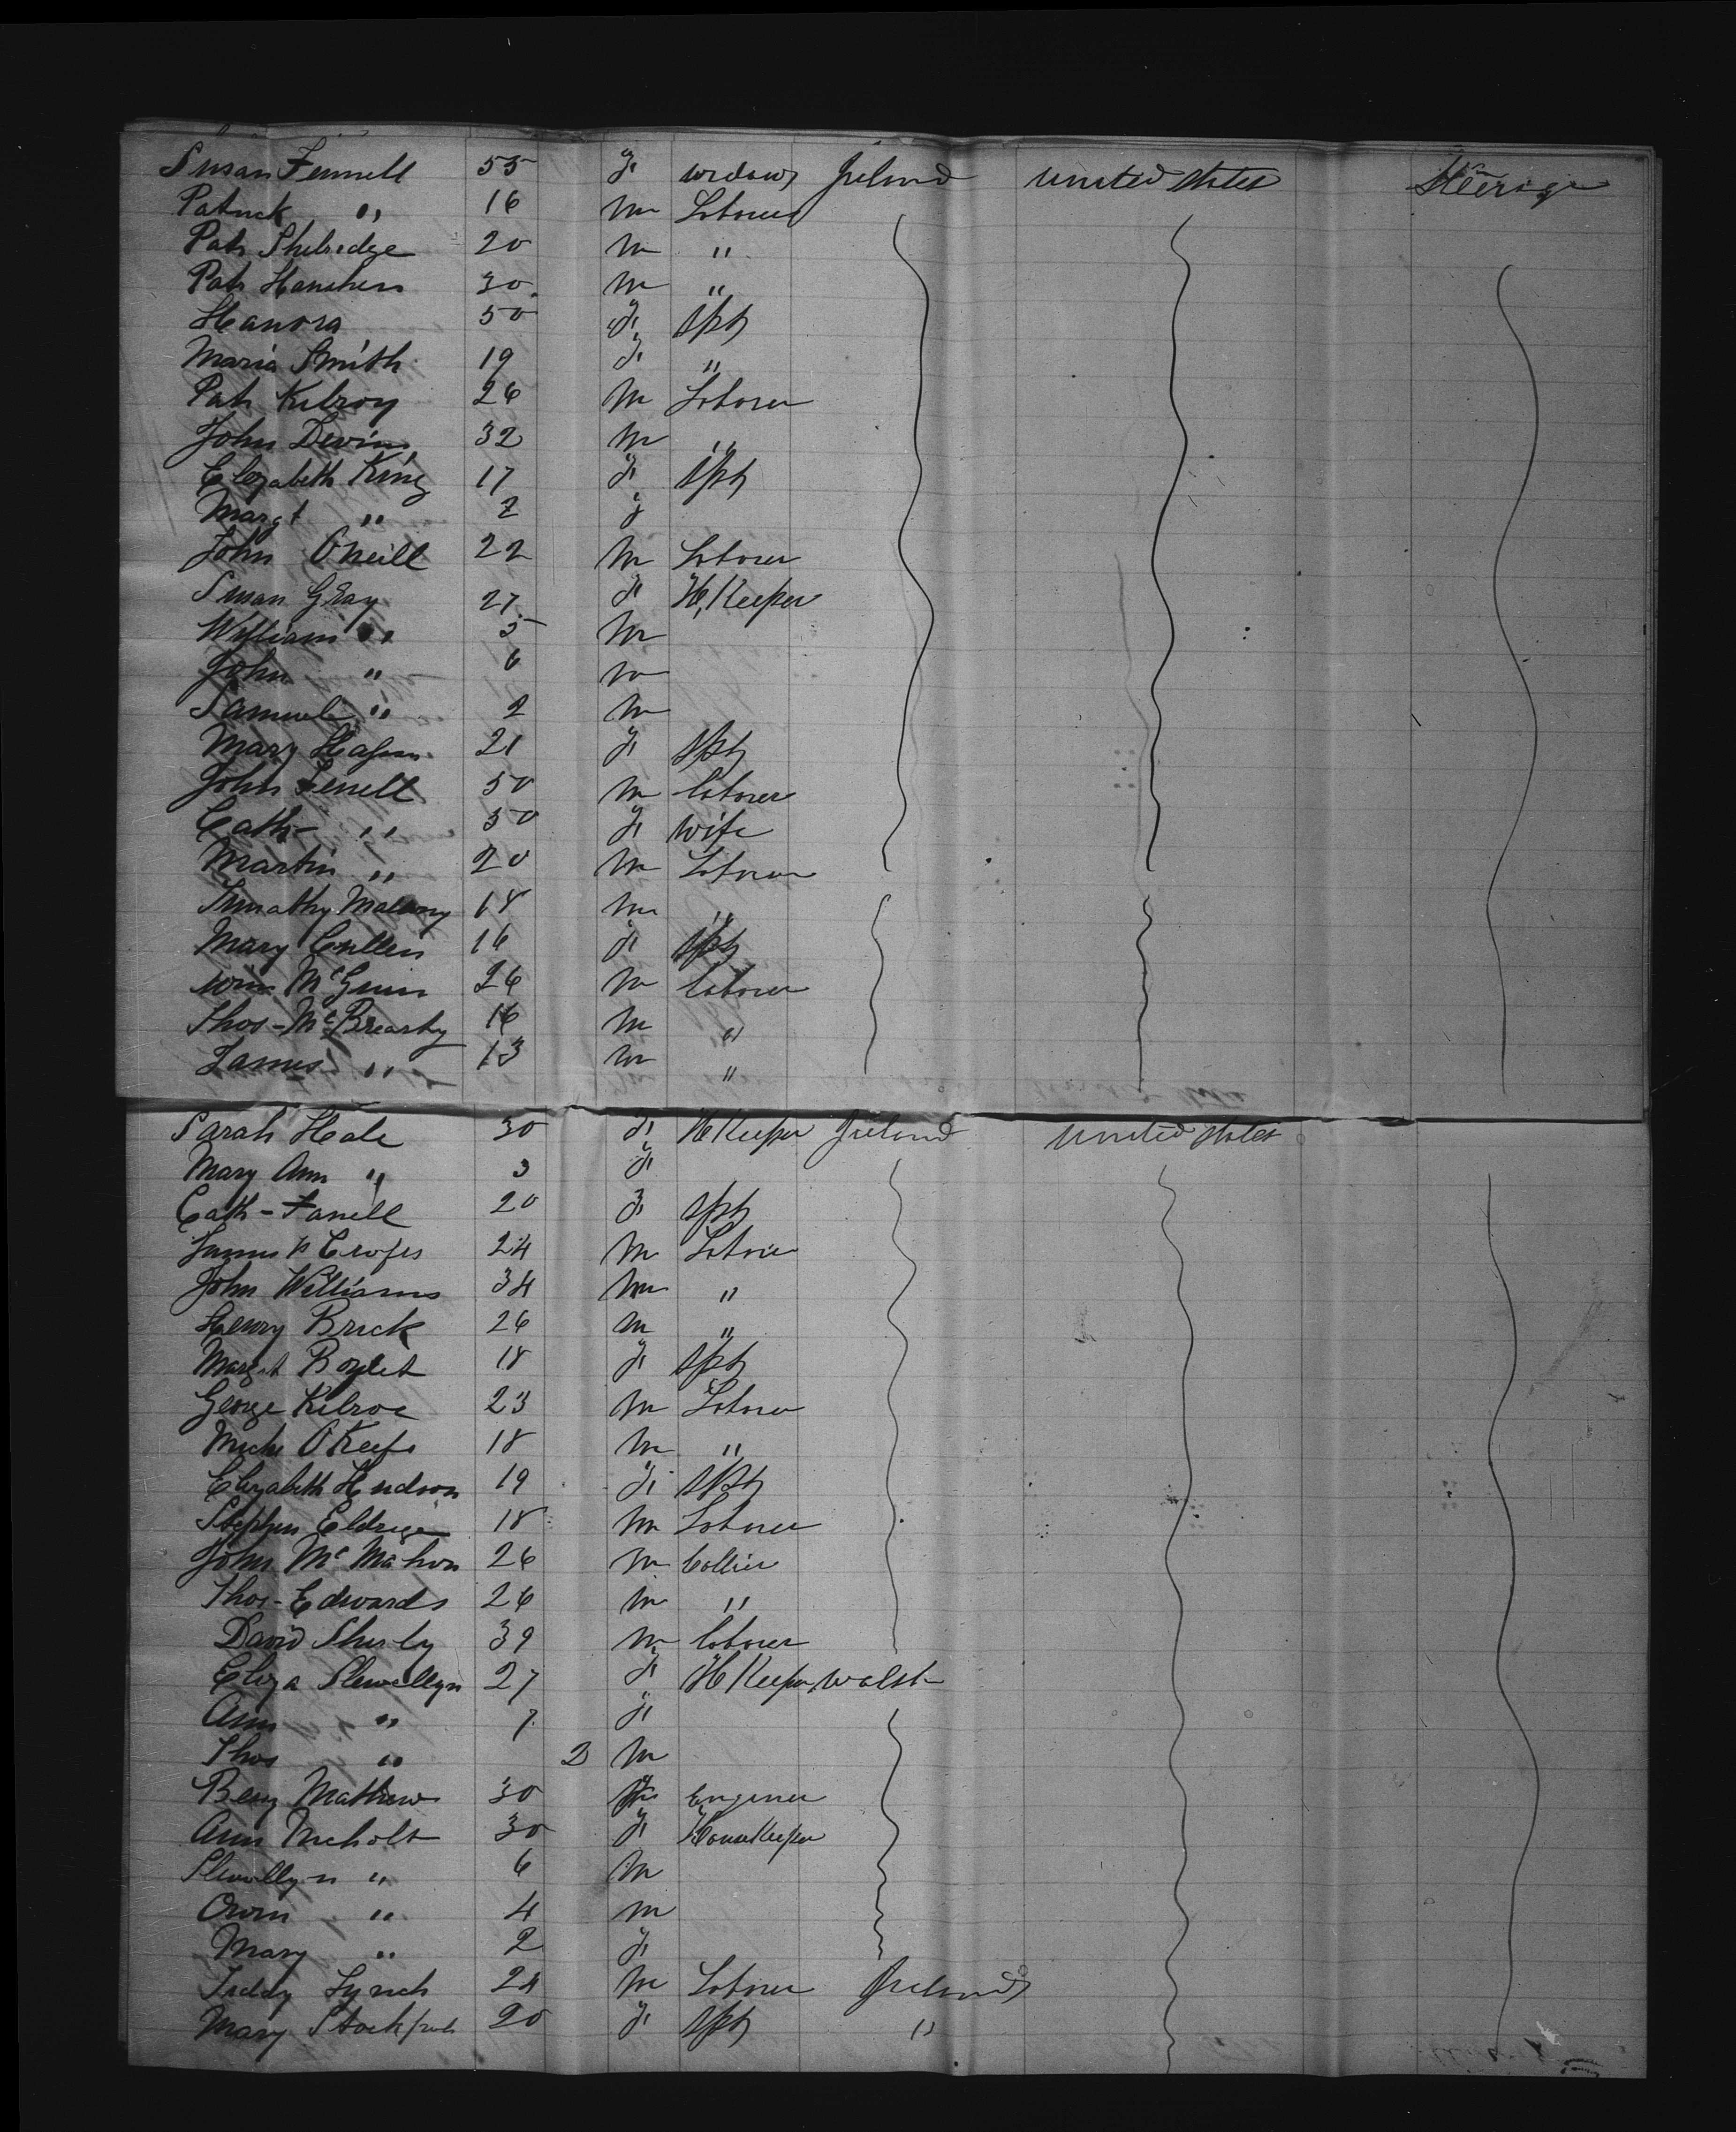 Susan Fennell 55 F widow Ireland United States Steerage
Patrick " 16 M Laborer
Pat Shelridge 20 M "
Pat Hanchen 30 M "
Hanora 50 F Spts
Maria Smith 19 F "
Pat Kilroy 26 M Laborer
John Devins 32 M "
Elizabeth King 17 F Spts
Margt " 2 F
John O'Neill 22 M Laborer
Susan Gray 27 F H, Keeper
William " 5 M
John " 6 M
Samuel " 2 M
Mary 21 F Spts
John Fenell 50 M laborer
Cath- " 50 F wife
Martin " 20 M Laborer
Timothy Malony 18 M "
Mary Cullen 16 F Spts
Wm McGuin 26 M laborer
Thos- McBrearty 16 M "
James " 13 M "
Sarah Hale 30 F H Keeper Ireland United States
Mary Ann " 3 F
Cath- Farrell 20 F Spts
James 24 M Laborer
John Williams 34 M "
Henry Brick 26 M "
Margat Boylet 18 F Spts
George Kilroe 23 M Laborer
Mich O'Keefe 18 M "
Elizabeth Hudson 19 F Spts
Stephen Eldrige 18 M Laborer
John McMahon 26 M Collier
Thos- Edwards 26 M "
David Shurly 39 M laborer
Eliza Llewellyn 27 F H Keeper Walsh
Ann " 7 F
Thos " 2 M
Benj Mathew 30 Enginer
Ann Nichols 30 F HouseKeeper
Llewellyn " 6 M
Owen " 4 M
Mary " 2 F
Teddy Lynch 24 M Laborer Ireland
Mary 20 F Spts "